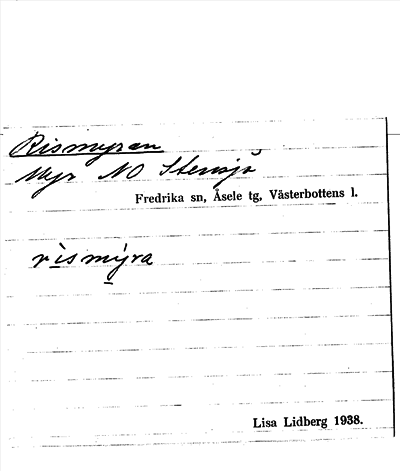 Rismyran
Myr NO Stensjö
Fredrika sn, Åsele tg, Västerbottens l.
rìsmýra
Lisa Lidberg 1938.